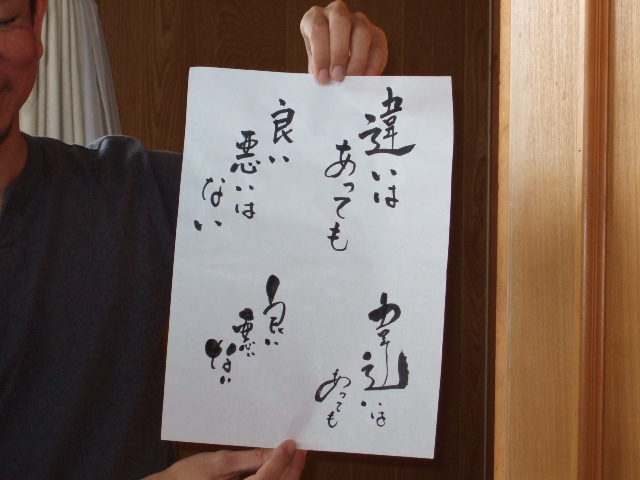 違いは
あっても
良い
悪いは
ない
違いは
あっても
良い
悪い
ない